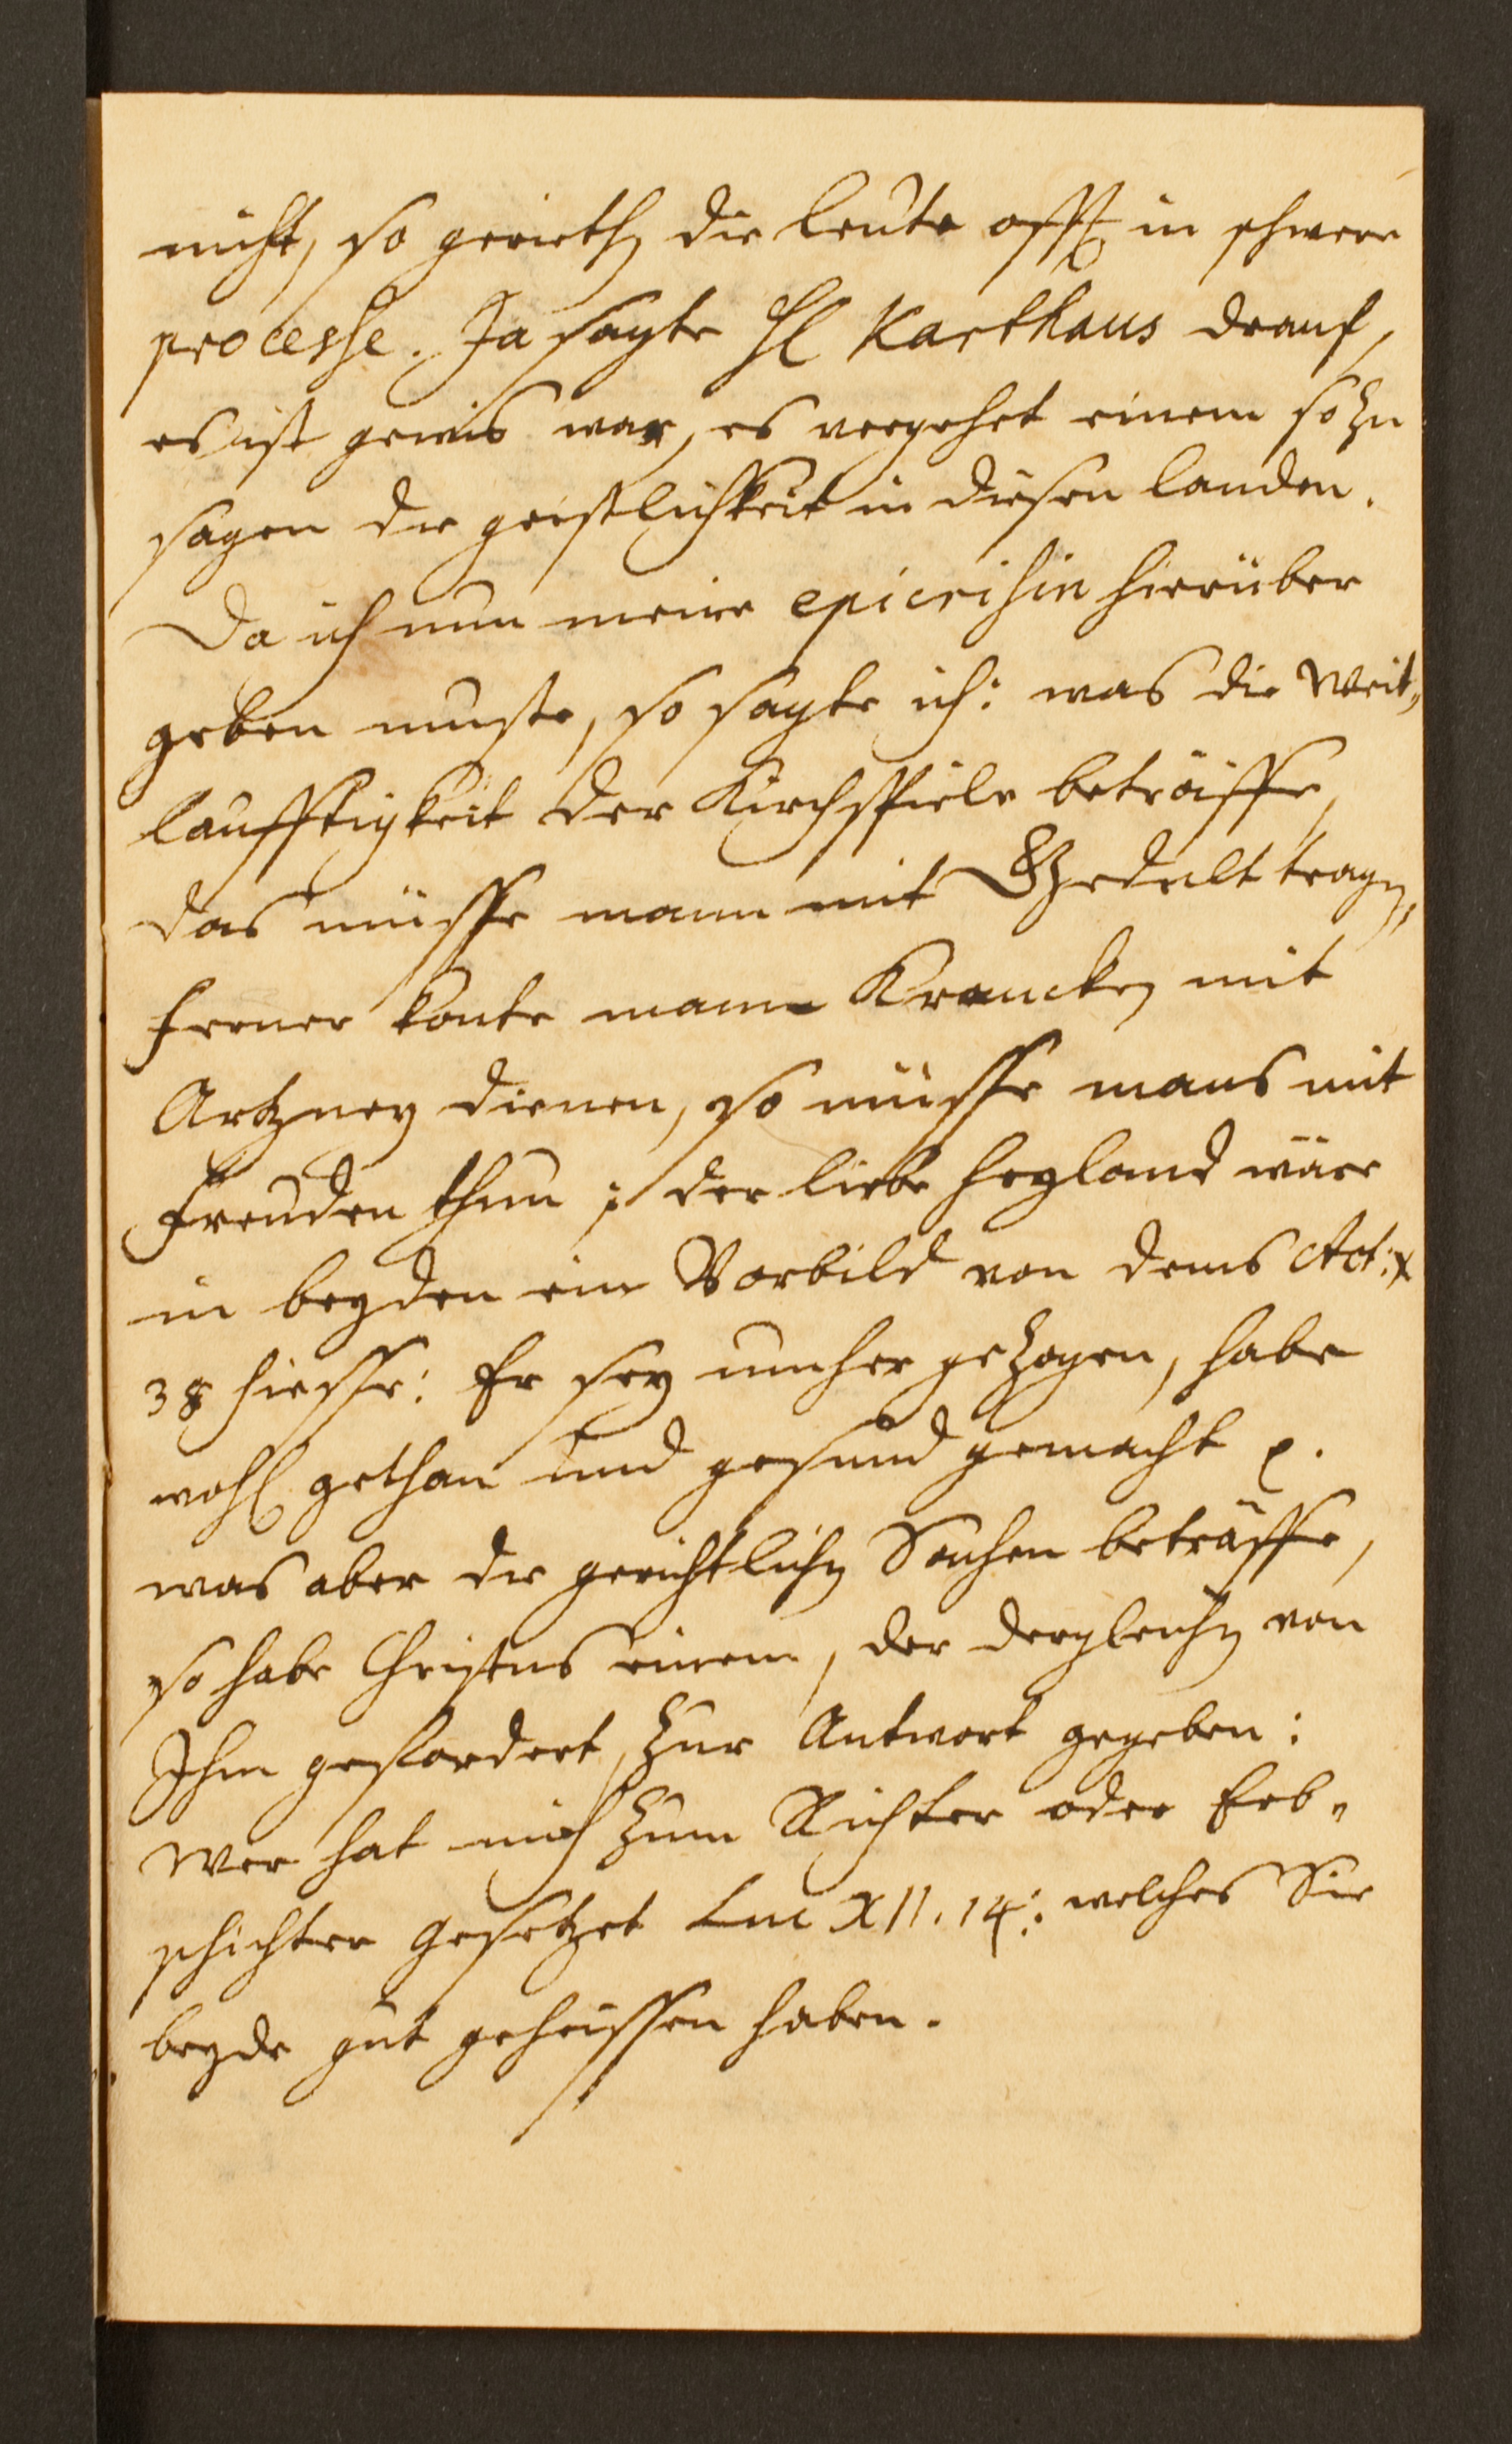 nicht, so geriethen die leute offt in schwere
processe. Ja sagte H Karthaus drauf,
es ist gewis war, es vergehet einem so zu
sagen die geistlichkeit in diesen landen.
Da ich nun meine epicrisin hierüber
geben muste, so sagte ich: was die Weit„
laufftigkeit der Kirchspiele beträffe,
das müsse mann mit Gedult tragen,
ferner konte mann Krancken mit
Artzney dienen, so müsse mans mit
Freuden thun; der liebe Heyland wäre
in beyden ein Vorbild von dems Act: X
38 hiesse: Er sey umher gezogen, habe
wohl gethan und gesund gemacht p.
was aber die gerichtlichen Sachen beträffe,
so habe Christus einem, der dergleichen von
Ihm gefordert, zur Antwort gegeben:
Wer hat mich zum Richter oder Erb„
schichter gesetzet Luc XII. 14: welches Sie
beyde gut geheissen haben.